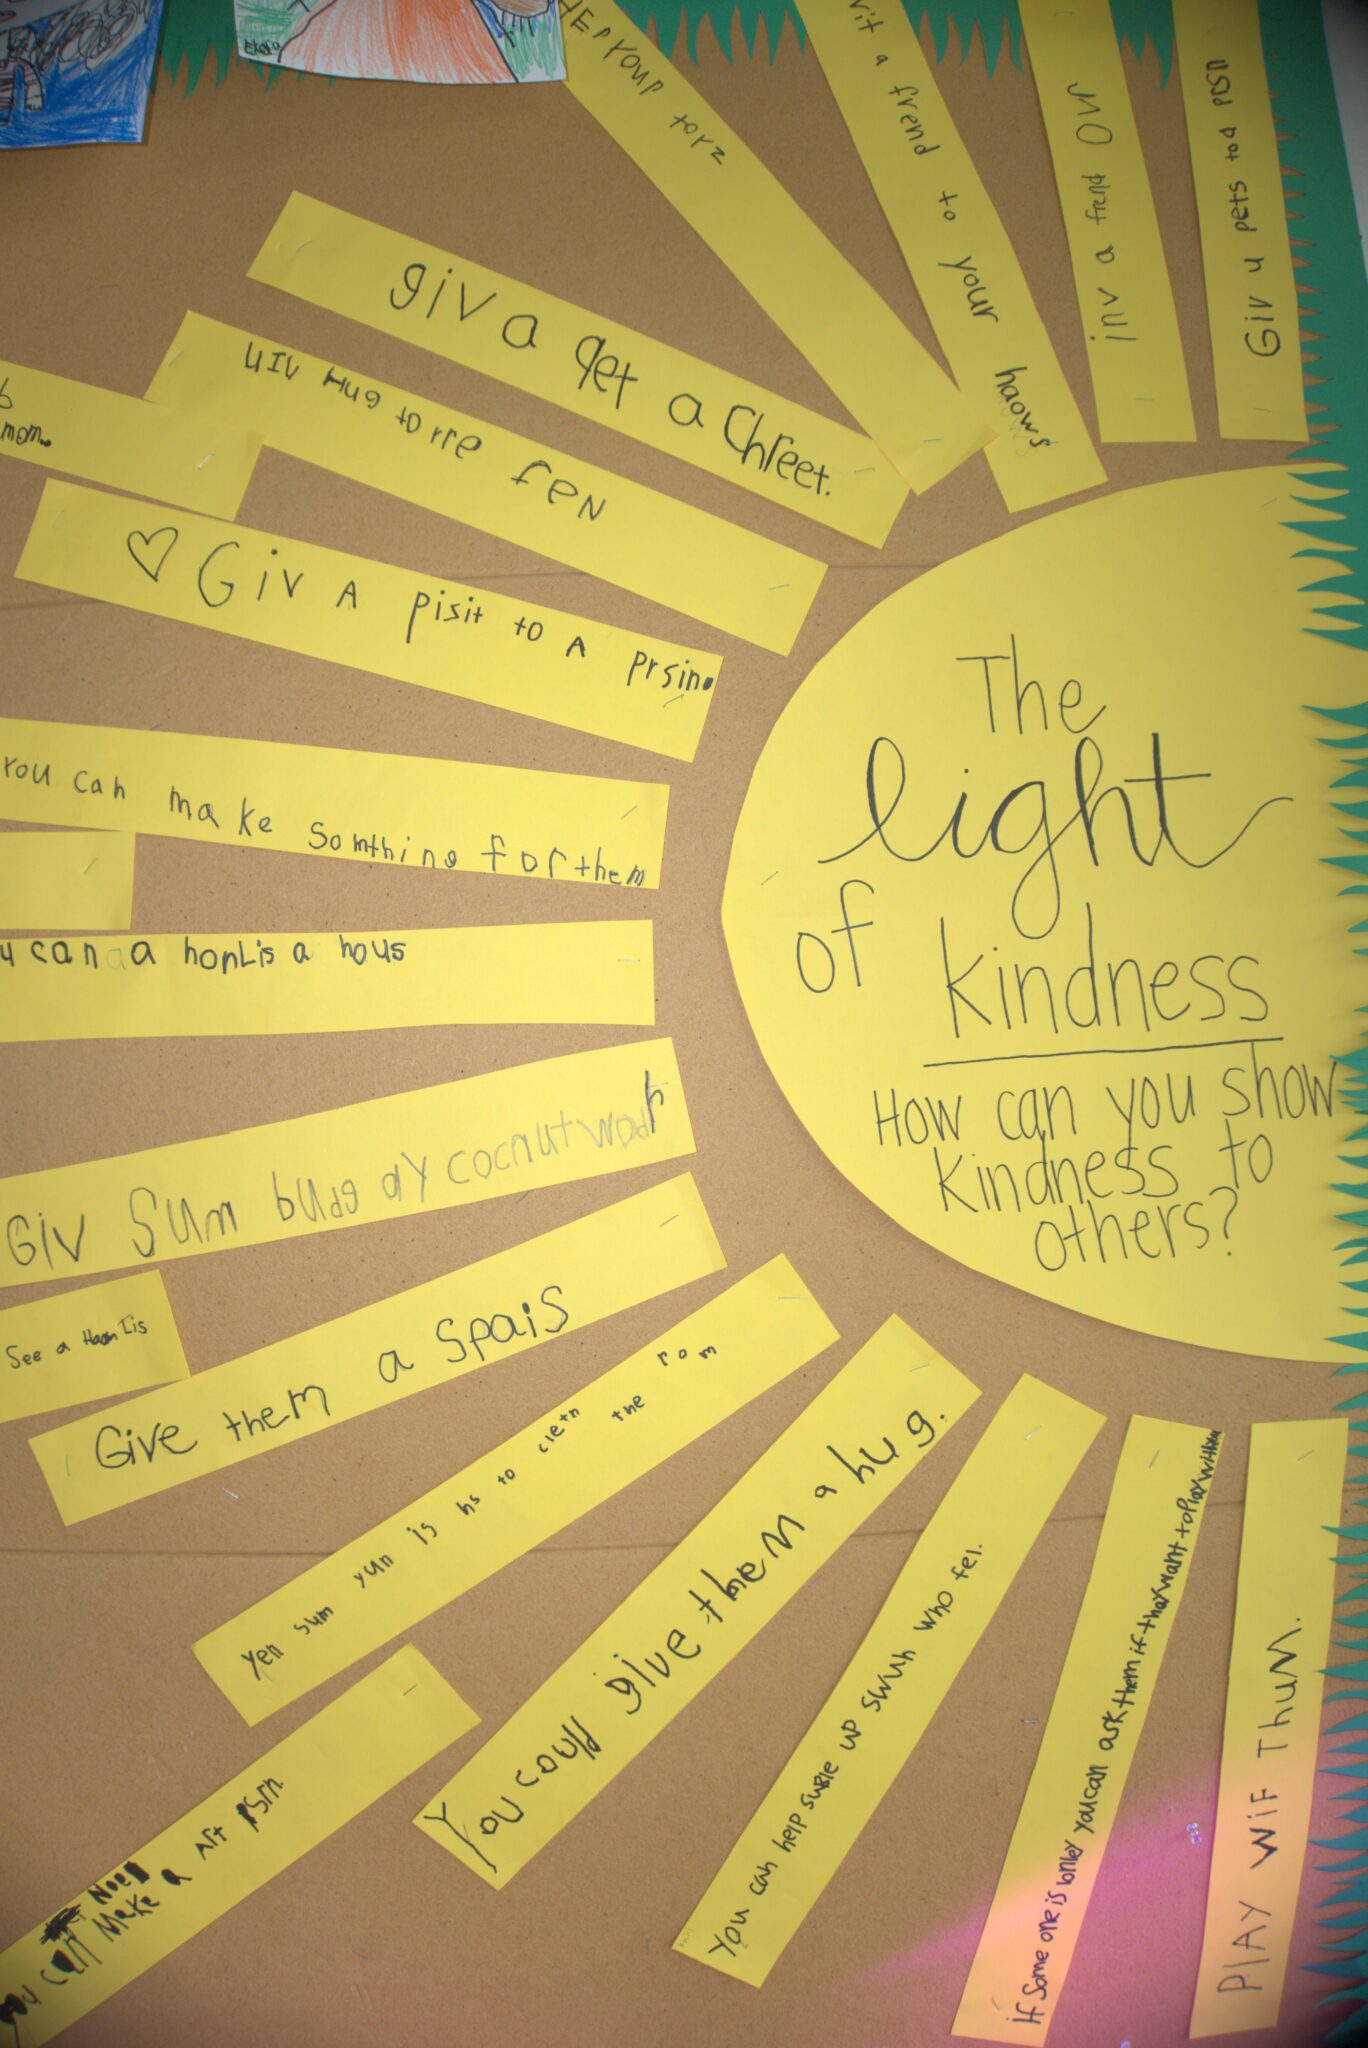 The
light
of
kindness
How can you show
kindness to
others?
Giv u pets to a prsn
inv a frend ovr
a frend to your haows
giv a get a Chreet.
Hug to rre fen
mom.
Giv A pisit to A prsin.
rou can make Somthing for them
can a honLis a hous
Giv Sum budg ay cocnut
See a
Give them a spais
Yen sum yun is hs to cletn the rom
You could give them a hug.
You can help subie up swuh who fel.
If Some one is lonley you can ask them if thay want to Play with
PlAY wiF Thum.
Make a Art